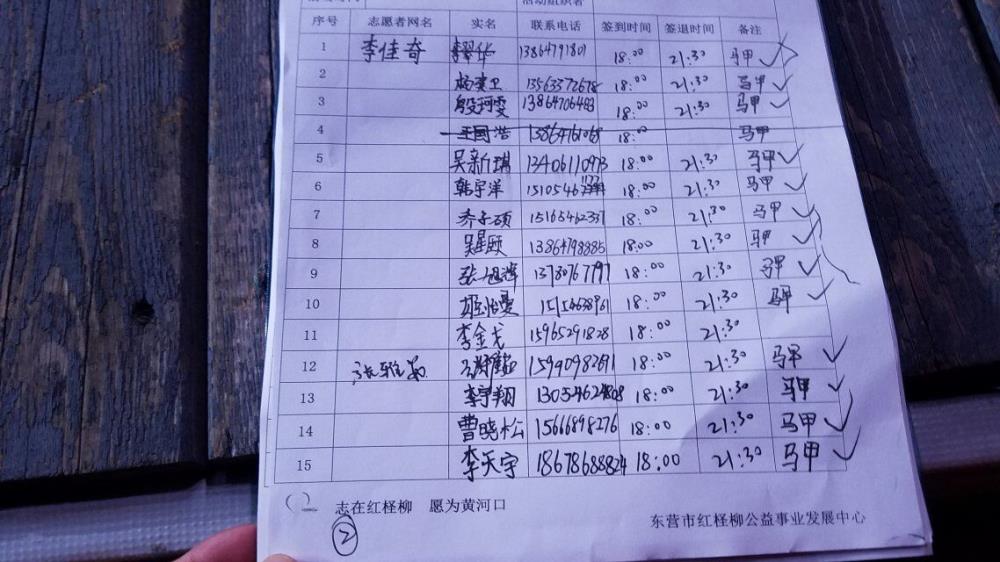 活动组织者
序号 志愿者网名 实名 联系电话 签到时间 签退时间 备注
1 李佳奇 李翠华 13864791801 18:00 21:30 马甲
2 杨建卫 13563372678 18:00 21:30 马甲
3 殷珂雯 13864706483 18:00 21:30 马甲
4 王国浩 13864761068 18:00 马甲
5 吴新琪 13406110973 18:00 21:30 马甲
6 韩宇洋 1510546 18:00 21:30 马甲
7 乔子硕 15165462337 18:00 21:30 马甲
8 吴星颐 13864798885 18:00 21:30 马甲
9 张旭辉 13780767797 18:00 21:30 马甲
10 18:00 21:30 马甲
11 李金戈 15965291828 18:00 21:30
12 18:00 21:30 马甲
13 李宇翔 18:00 21:30 马甲
14 曹晓松 15666898276 18:00 21:30 马甲
15 李天宇 18678688824 18:00 21:30 马甲
志在红柽柳 愿为黄河口
东营市红柽柳公益事业发展中心
②